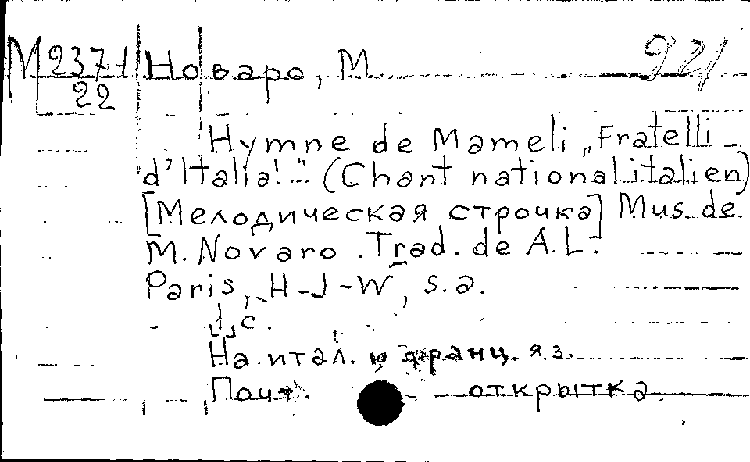 М 2371/22 Новаро, М. 921
Hymne de Mameli „Fratelli
d'Italia!.." (Chant national italien)
[Мелодическая строчка] Mus. de
M. Novaro. Trad. de A.L.
Paris, H-J-W, s.a.
1 с.
На итал. и франц. яз.
Почт. открытка.